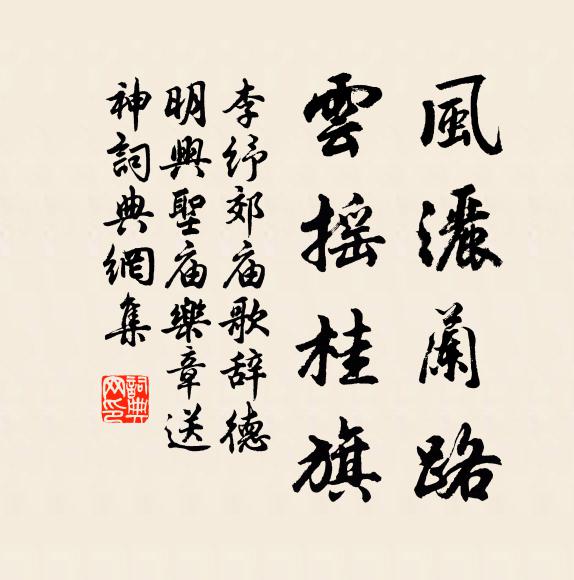 風灑蘭路
雲搖桂旗
李紓郊庙歌辞德
明興聖庙樂章送
神詞典網集
詞典网印